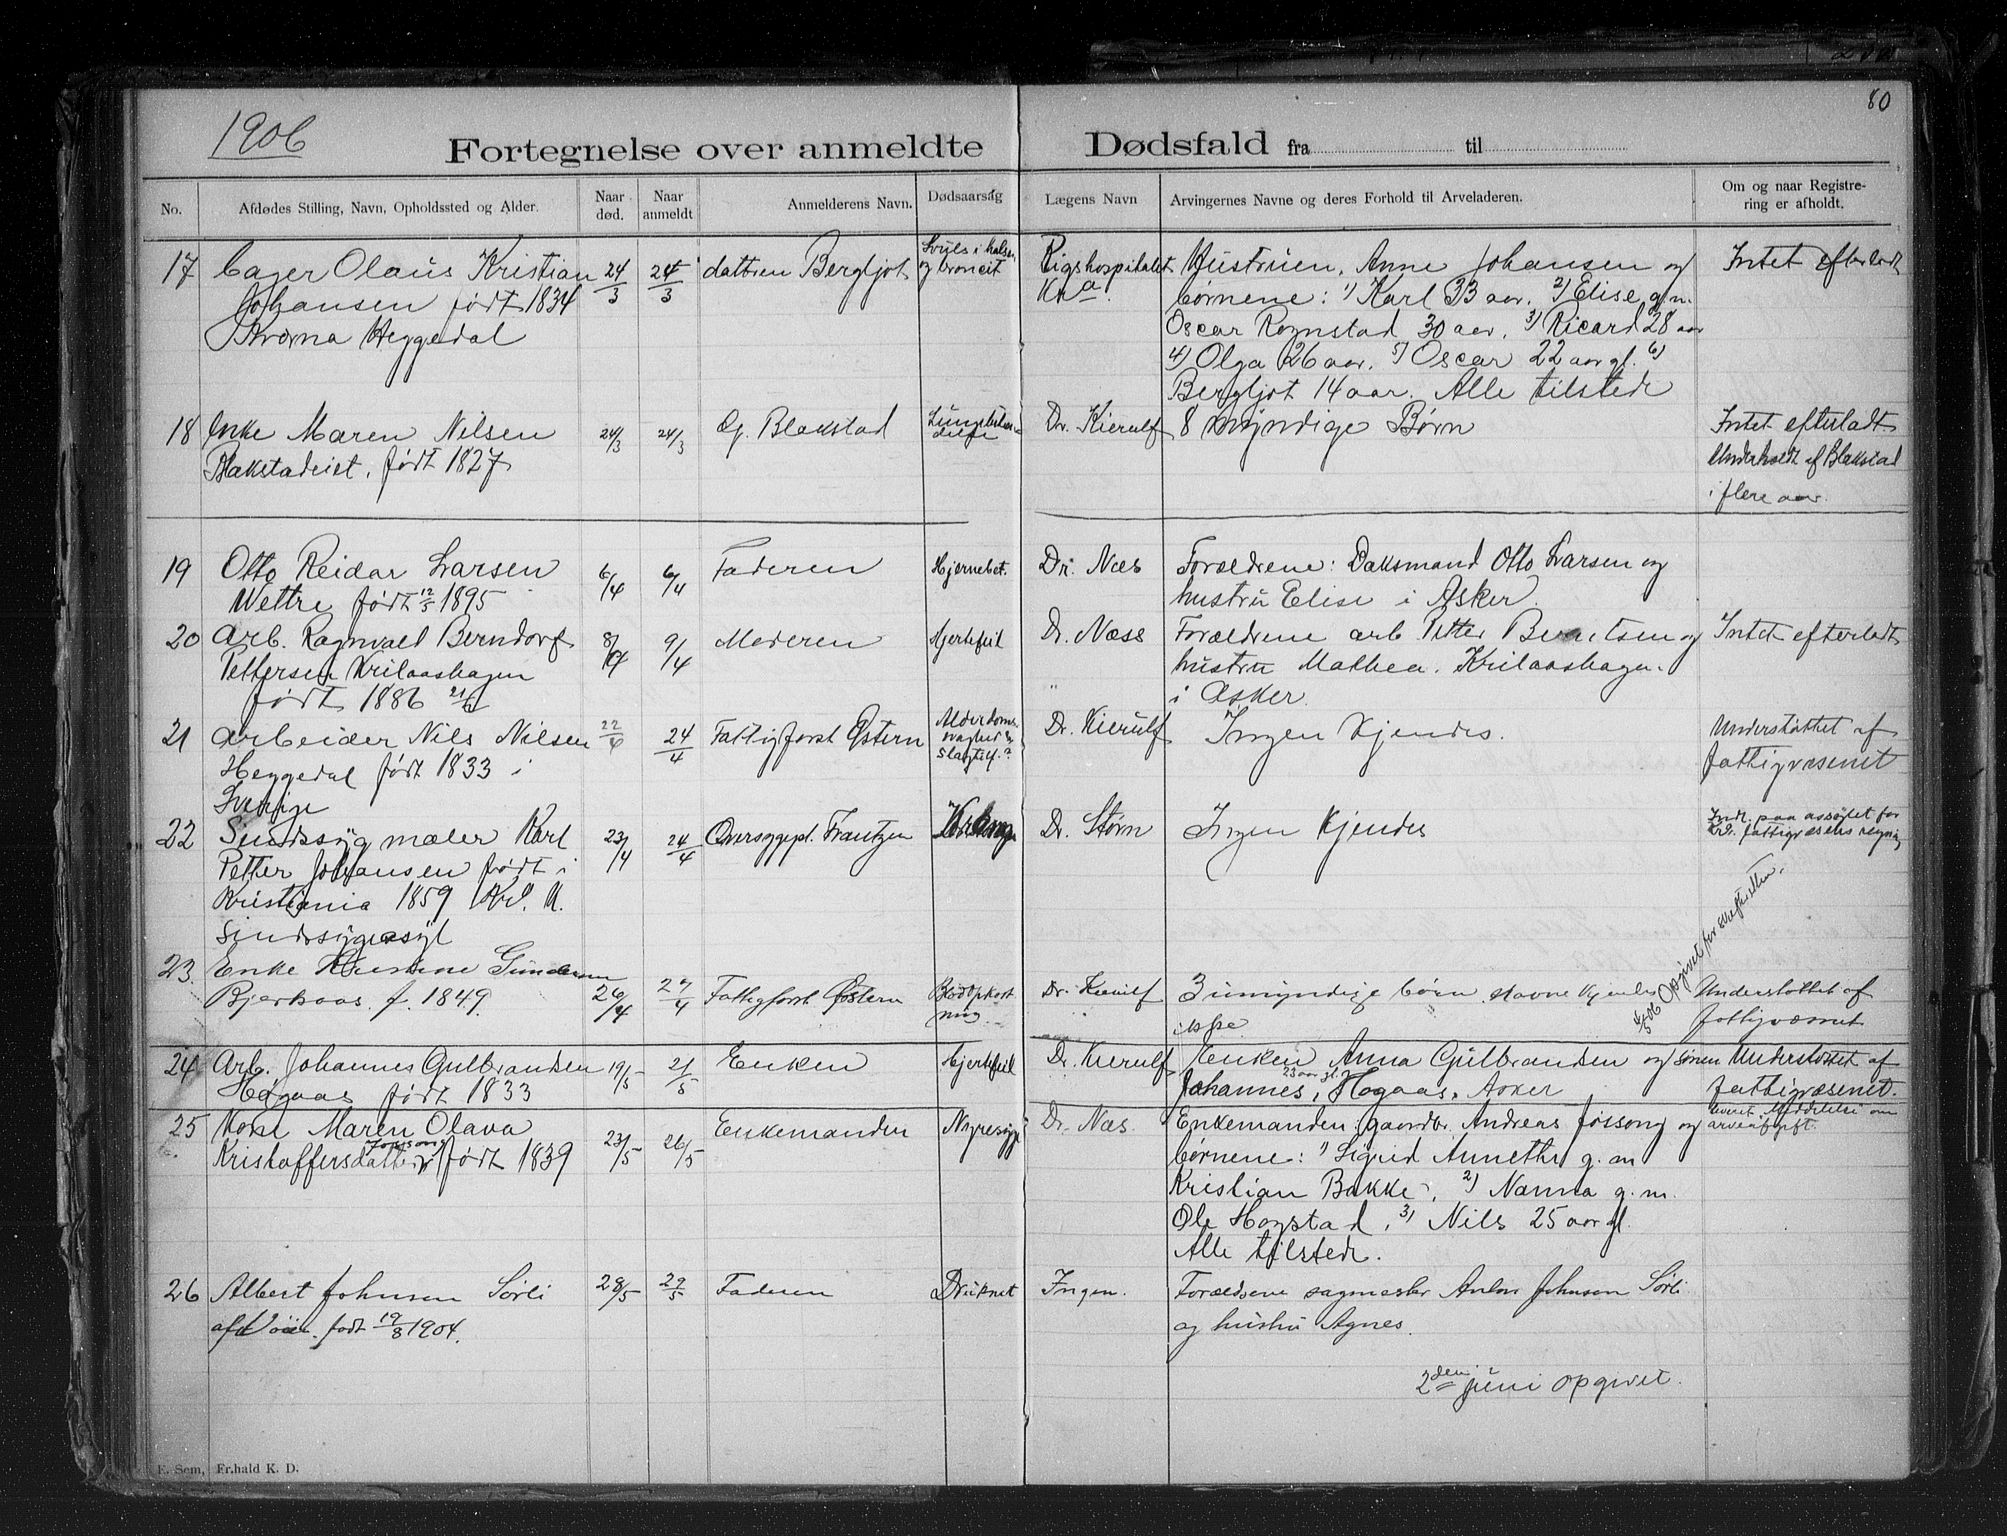 80
1906
Fortegnelse over anmeldte Dødsfald fra til
No. Afdødes Stilling, Navn, Opholdssted og Alder. Naar død. Naar anmeldt Anmelderens Navn. Dødsaarsåg Lægens Navn Arvingernes Navne og deres Forhold til Arveladeren. Om og naar Registrering er afholdt.
17 Olaus Kristian 24/3 24/3 dattren Bergljot i halsen Rigshospitalet Hustruen, Anne Johansen og Intet efterladt
Johansen født 1834 og Kra. børnene: 1) Karl 33 aar. 2) Elise g.m.
Heggedal Oscar Rognstad 30 aar, 3) Ricard 28 aar
4) Olga 26 aar. 5) Oscar 22 aar gl. 6)
Bergljot 14 aar. Alle tilstede
18 Enke Maren Nilsen 24/3 24/3 G. Blakstad Dr. Kierulf 8 myndige Børn Intet efterladt
Blakstadeiet, født 1827 Underholdt af Blakstad
i flere aar.
19 Otto Reidar Larsen 6/4 6/4 Faderen Hjernebet. Dr. Næs Forældrene: Otto Larsen og
Wettre født 12/5 1895 hustru Elise i Asker
20 Arb. Ragnvald Berndorf 8/4 9/4 Moderen Hjertefeil Dr. Næss Forældrene arb. Petter Berntsen og Intet efterladt
Pettersen hustru Mathea.
født 1886 i Asker.
21 Arbeider Nils Nilsen 22/4 24/4 Fattigforst Østern Alderdoms- Dr. Kierulf Ingen kjendes. Understøttet af
Heggedal født 1833 i svaghed fattigvæsenet
Sverige
22 Sindssyg maler Karl 23/4 24/4 Oversygepl. Frantzen Dr. Størn Ingen kjendes Indl. paa assylet for
Petter Johansen født i fattigvæsens regning
Kristiania 1859
Sindssygeasyl
Opgivet for skifteretten.
23. Enke Gundersen 26/4 27/4 Fattigforst Østern Dr. Kierulf 3 umyndige børn navne kjendes Understøttet af
Bjerkaas. f. 1849. ikke fattigvæsnet
24 Arb. Johannes Gulbrandsen 19/5 21/5 Enken Hjertefeil Dr. Kierulf Enken Anna Gulbrandsen og sønen Understøttet af
Høgaas født 1833 Johannes, 23 aar gl. Høgaas, Asker fattigvæsenet.
25 Kone Maren Olava 23/5 26/5 Enkemanden Nyresyge Dr. Næs. Enkemanden: gaardbr. Andreas Jossong og Meddelelse om
Kristoffersdatter Jossong født 1839 børnene: 1) Sigrid Annethe g. m arveafgift.
Kristian Bakke, 2) Nanna g. m.
Ole Hogstad, 3) Nils 25 aar gl.
Alle tilstede.
26 Albert Johnsen Sørli 28/5 29/5 Faderen Druknet Ingen. Forældrene sagmester Anton Johnsen Sørli
født 19/8 1904. og hustru Agnes.
2den juni opgivet.
E. Sem, Fr.hald K. D.